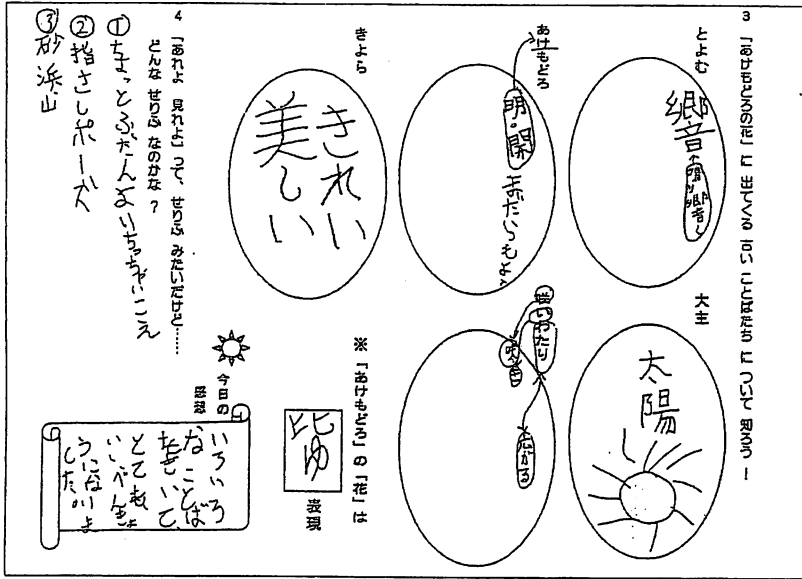 3 「あけもどろの花」に 出てくる 古い ことばたち に ついて 知ろう!
とよむ
響
↑鳴り響し
大主
太陽
あけもどろ
明・開
まだらもよう
咲いわたり
咲き
広がる
きよら
きれい
美しい
※「あけもどろ」の「花」は
比ゆ
表現
4 「あれよ 見れよ」って、せりふ みたいだけど……
どんな せりふ なのかな ?
①ちょっとふだんよいちっちゃいこえ
②指さしポーズ
③砂浜山
今日の
感想
いろいろ
なことば
をきいて、
とてもよ
いべんきょ
うになりま
した。